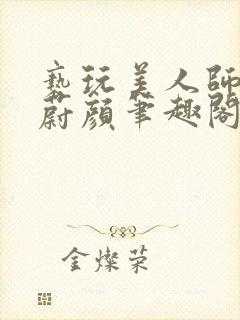 褻玩美人師
蔚顏筆趣閣
金燦荣